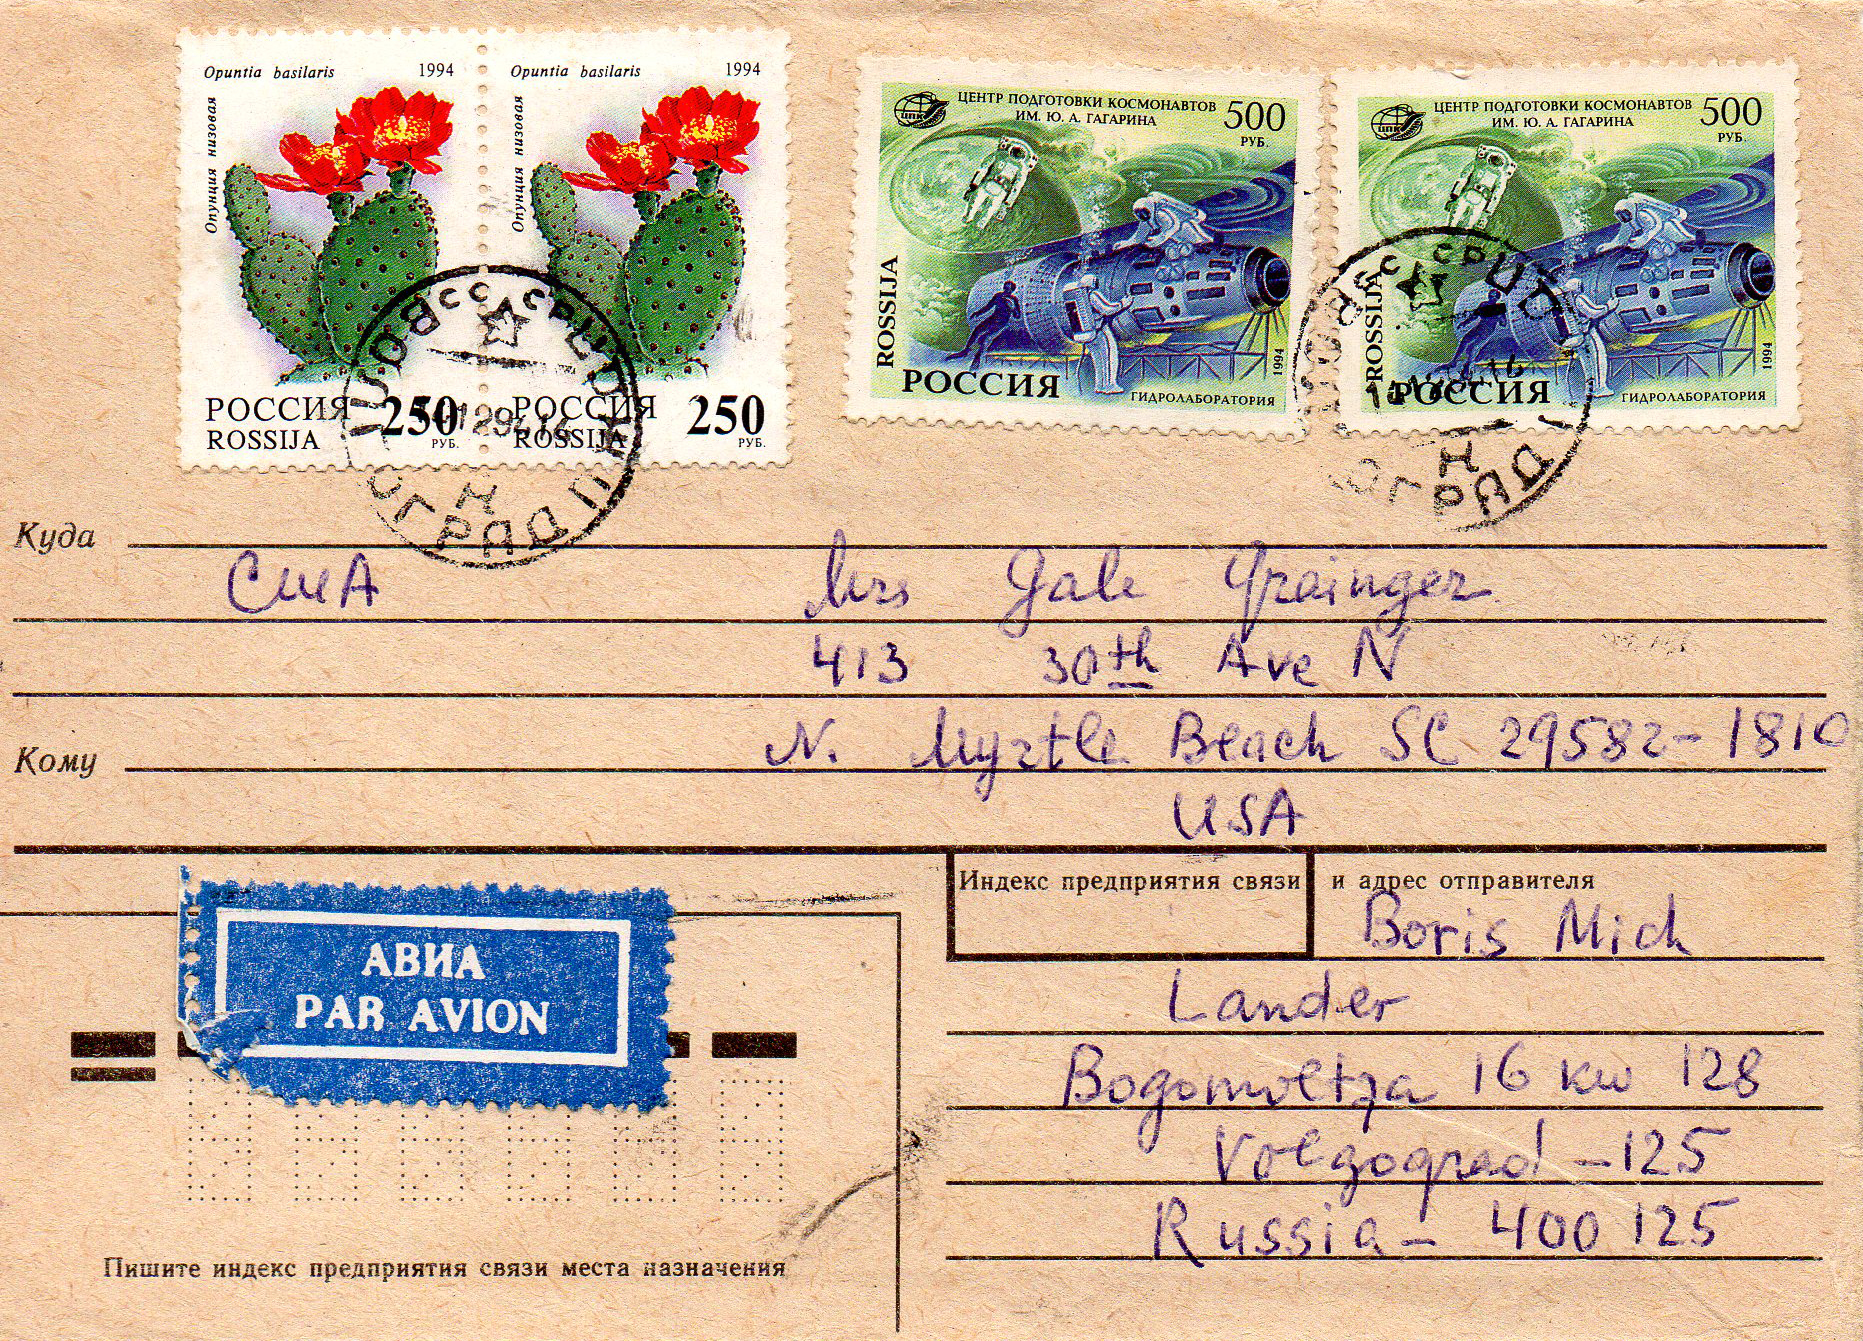 Opuntia basilaris 1994
Опунция низовая
РОССИЯ 250
ROSSIJA РУБ.
Opuntia basilaris 1994
Опунция низовая
РОССИЯ 250
ROSSIJA РУБ.
ЦПК ЦЕНТР ПОДГОТОВКИ КОСМОНАВТОВ 500
ИМ. Ю. А. ГАГАРИНА РУБ.
ROSSIJA
РОССИЯ
ГИДРОЛАБОРАТОРИЯ
1994
ЦПК ЦЕНТР ПОДГОТОВКИ КОСМОНАВТОВ 500
ИМ. Ю. А. ГАГАРИНА РУБ.
ROSSIJA
РОССИЯ
ГИДРОЛАБОРАТОРИЯ
1994
СССР
ВОЛГОГРАД
Куда
США Mrs Gale Grainger
413 30th Ave N
Кому N. Myrtle Beach SC 29582-1810
USA
Индекс предприятия связи и адрес отправителя
Boris Mich
Lander
Bogomoltza 16 kw 128
Volgograd - 125
Russia - 400 125
АВИА
PAR AVION
Пишите индекс предприятия связи места назначения